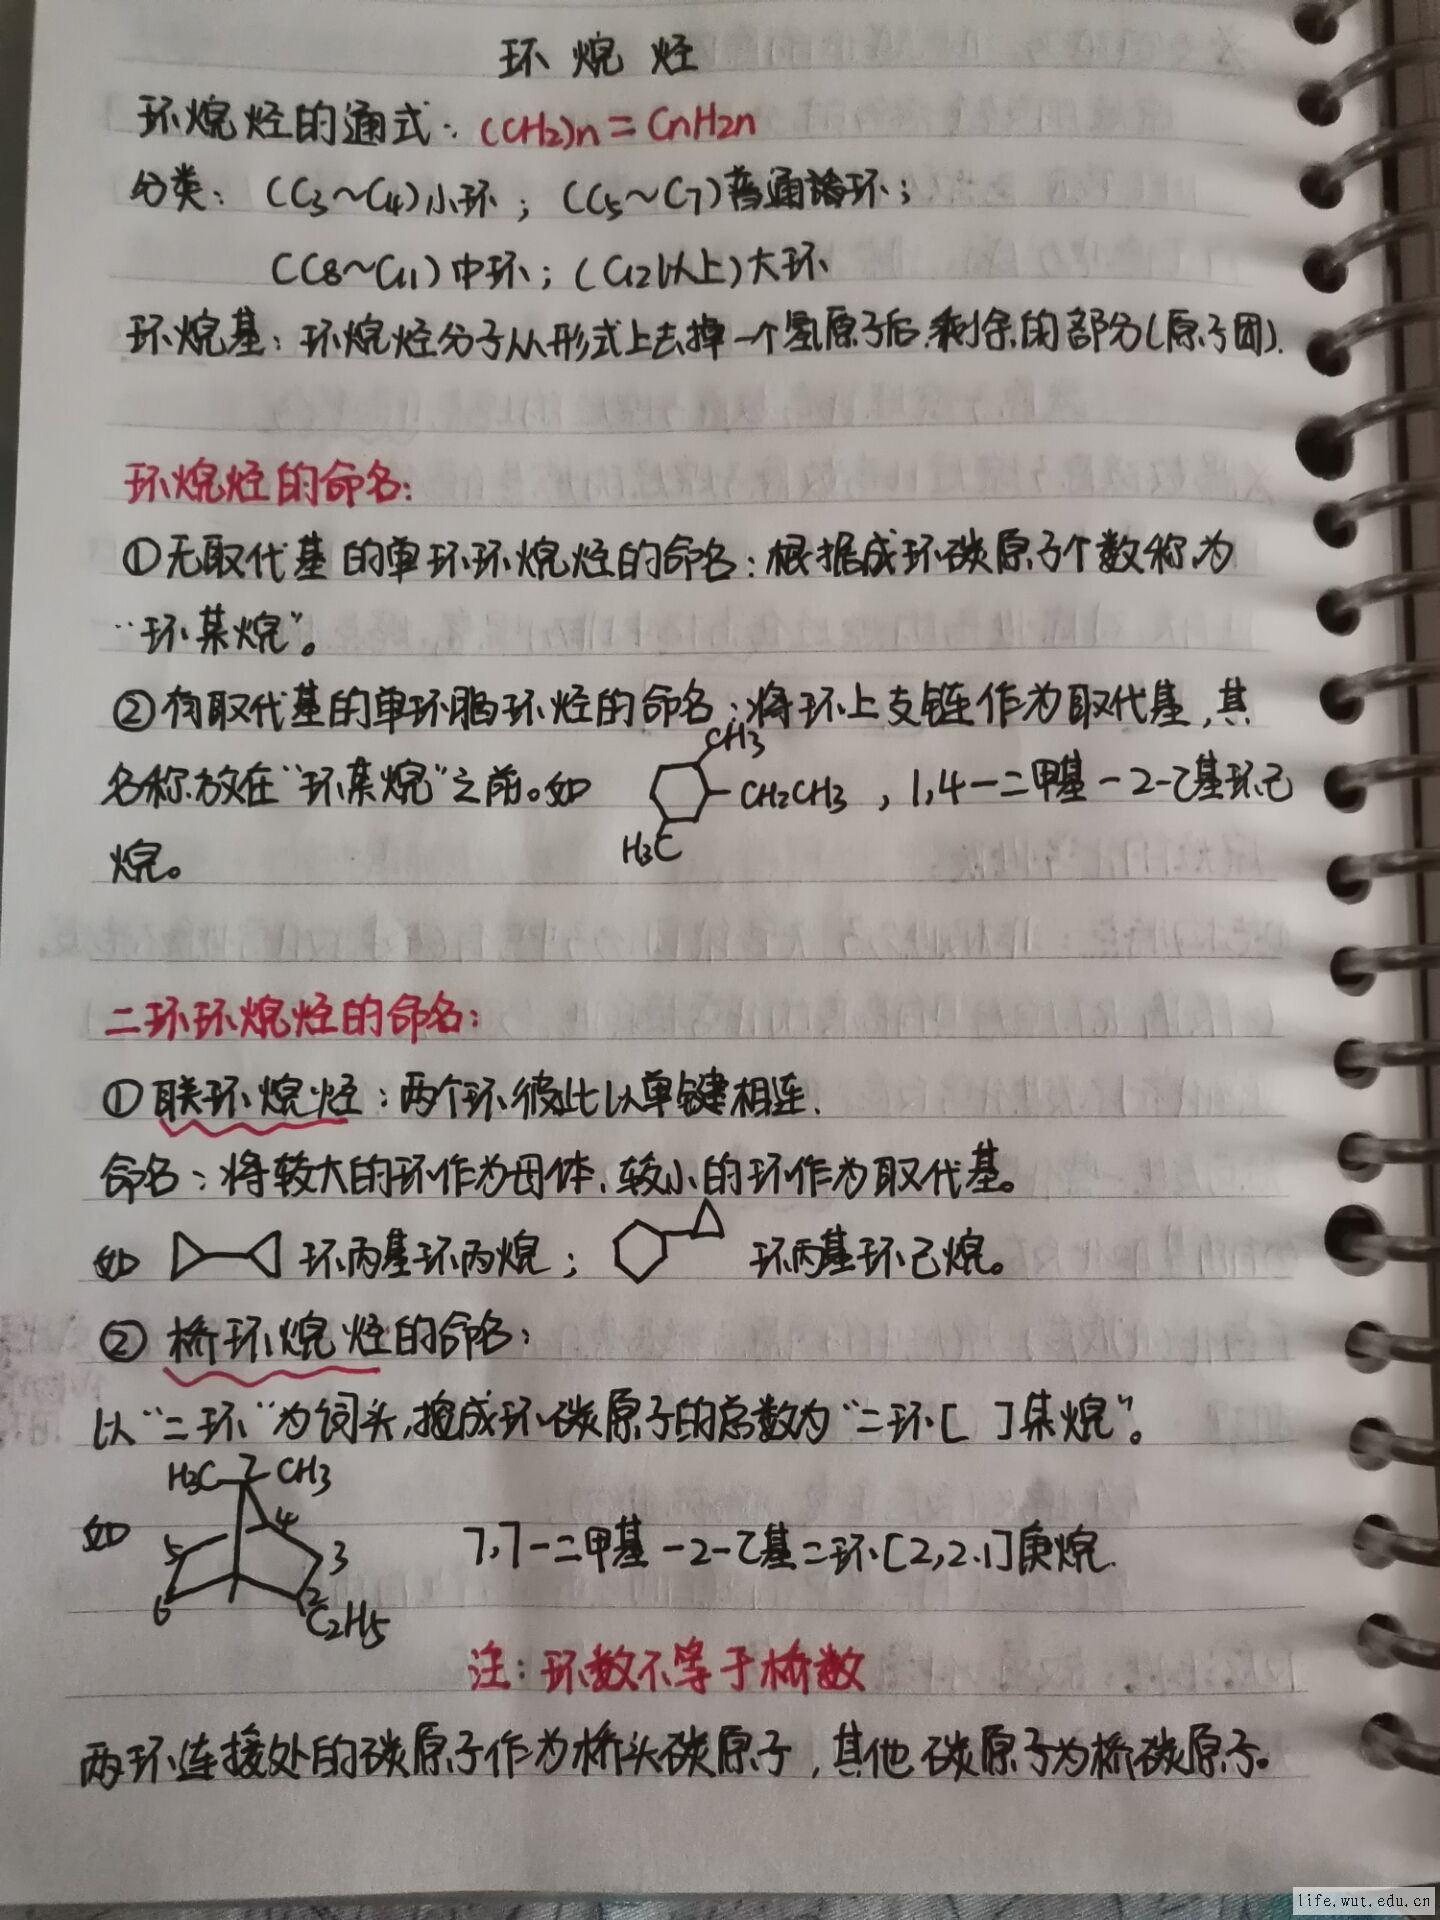 环烷烃
环烷烃的通式: (CH2)n = CnH2n
分类: (C3~C4)小环; (C5~C7)普通环;
(C8~C11)中环; (C12以上)大环
环烷基: 环烷烃分子从形式上去掉一个氢原子后,剩余的部分(原子团).
环烷烃的命名:
①无取代基的单环环烷烃的命名: 根据成环碳原子个数称为
"环某烷"。
②有取代基的单环环烃的命名: 将环上支链作为取代基,其
CH3
名称放在"环某烷"之前。如 CH2CH3 , 1,4-二甲基-2-乙基环己
H3C
烷。
二环环烷烃的命名:
①联环烷烃: 两个环彼此以单键相连.
命名: 将较大的环作为母体,较小的环作为取代基。
如 环丙基环丙烷; 环丙基环己烷。
②桥环烷烃的命名:
以"二环"为词头,按成环碳原子的总数为"二环[ ]某烷"。
H3C 7 CH3
如 5 4 3 7,7-二甲基-2-乙基二环[2,2.1]庚烷.
6 2 C2H5
注: 环数不等于桥数
两环连接处的碳原子作为桥头碳原子,其他碳原子为桥碳原子。
life.wut.edu.cn